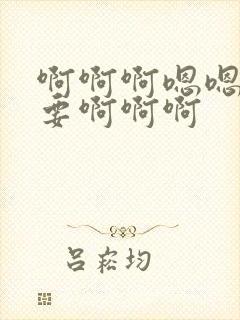 啊啊啊嗯嗯
要啊啊啊
吕崧均